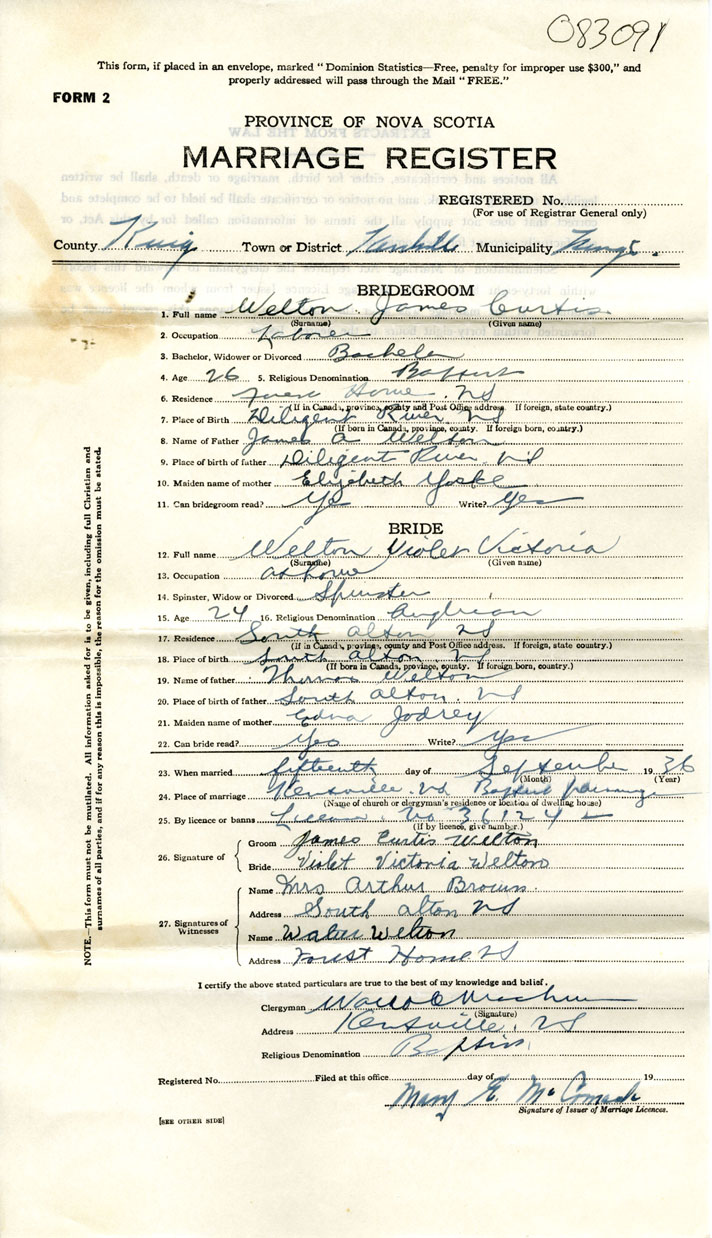 083091
This form, if placed in an envelope, marked “ Dominion Statistics—Free, penalty for improper use $300,” and
properly addressed will pass through the Mail “ FREE.”
FORM 2
PROVINCE OF NOVA SCOTIA
MARRIAGE REGISTER
REGISTERED No.
(For use of Registrar General only)
County Town or District Municipality Kings
BRIDEGROOM
1. Full name Welton James Curtis
(Surname) (Given name)
2. Occupation Laborer
3. Bachelor, Widower or Divorced Bachelor
4. Age 26 5. Religious Denomination Baptist
6. Residence Forest Home NS
(If in Canada, province, county and Post Office address. If foreign, state country.)
7. Place of Birth Diligent River NS
(If born in Canada, province, county. If foreign born, country.)
8. Name of Father James A Welton
9. Place of birth of father Diligent River NS
10. Maiden name of mother Elizabeth Yorke
11. Can bridegroom read? Yes Write? Yes
BRIDE
12. Full name Welton Violet Victoria
(Surname) (Given name)
13. Occupation at home
14. Spinster, Widow or Divorced Spinster
15. Age 24 16. Religious Denomination Anglican
17. Residence South Alton NS
(If in Canada, province, county and Post Office address. If foreign, state country.)
18. Place of birth South Alton NS
(If born in Canada, province, county. If foreign born, country.)
19. Name of father Thomas Welton
20. Place of birth of father South Alton NS
21. Maiden name of mother Edna Jodrey
22. Can bride read? Yes Write? Yes
23. When married fifteenth day of September 1936
(Month) (Year)
24. Place of marriage Kentville NS Baptist parsonage
(Name of church or clergyman's residence or location of dwelling house)
25. By licence or banns License No 36124
(If by licence, give number.)
26. Signature of { Groom James Curtis Welton
Bride Violet Victoria Welton
27. Signatures of Witnesses { Name Mrs Arthur Brown
Address South Alton NS
Name Welton
Address Forest Home NS
I certify the above stated particulars are true to the best of my knowledge and belief.
Clergyman
(Signature)
Address Kentville, NS
Religious Denomination Baptist
Registered No. Filed at this office day of 19
Mary E. McCormack
Signature of Issuer of Marriage Licences.
[SEE OTHER SIDE]
NOTE.—This form must not be mutilated. All information asked for is to be given, including full Christian and
surnames of all parties, and if for any reason this is impossible, the reason for the omission must be stated.